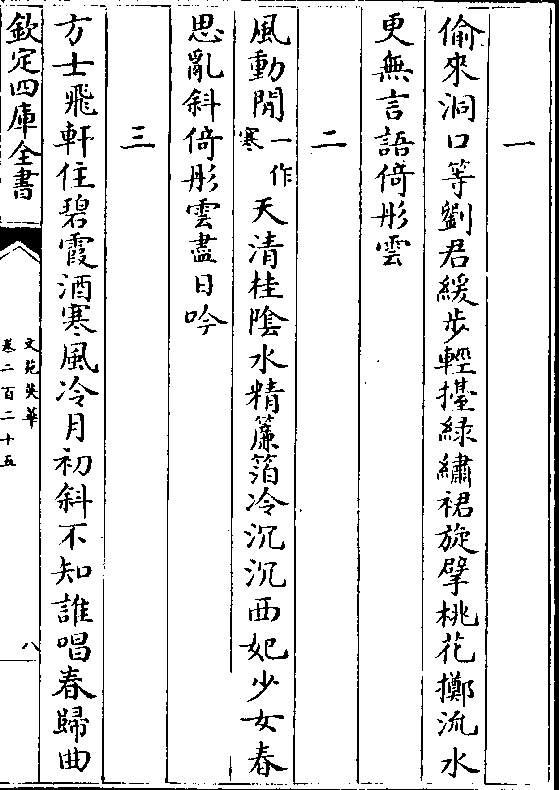 一
偷來洞口等劉君緩步輕擡緑繡裙旋擘桃花擲流水
更無言語倚彤雲
二
風動閒一作寒天清桂陰水精簾箔冷沉沉西妃少女春
思亂斜倚彤雲盡日吟
三
方士飛軒住碧霞酒寒風冷月初斜不知誰唱春歸曲
欽定四庫全書
文苑英華
卷二百二十五
八